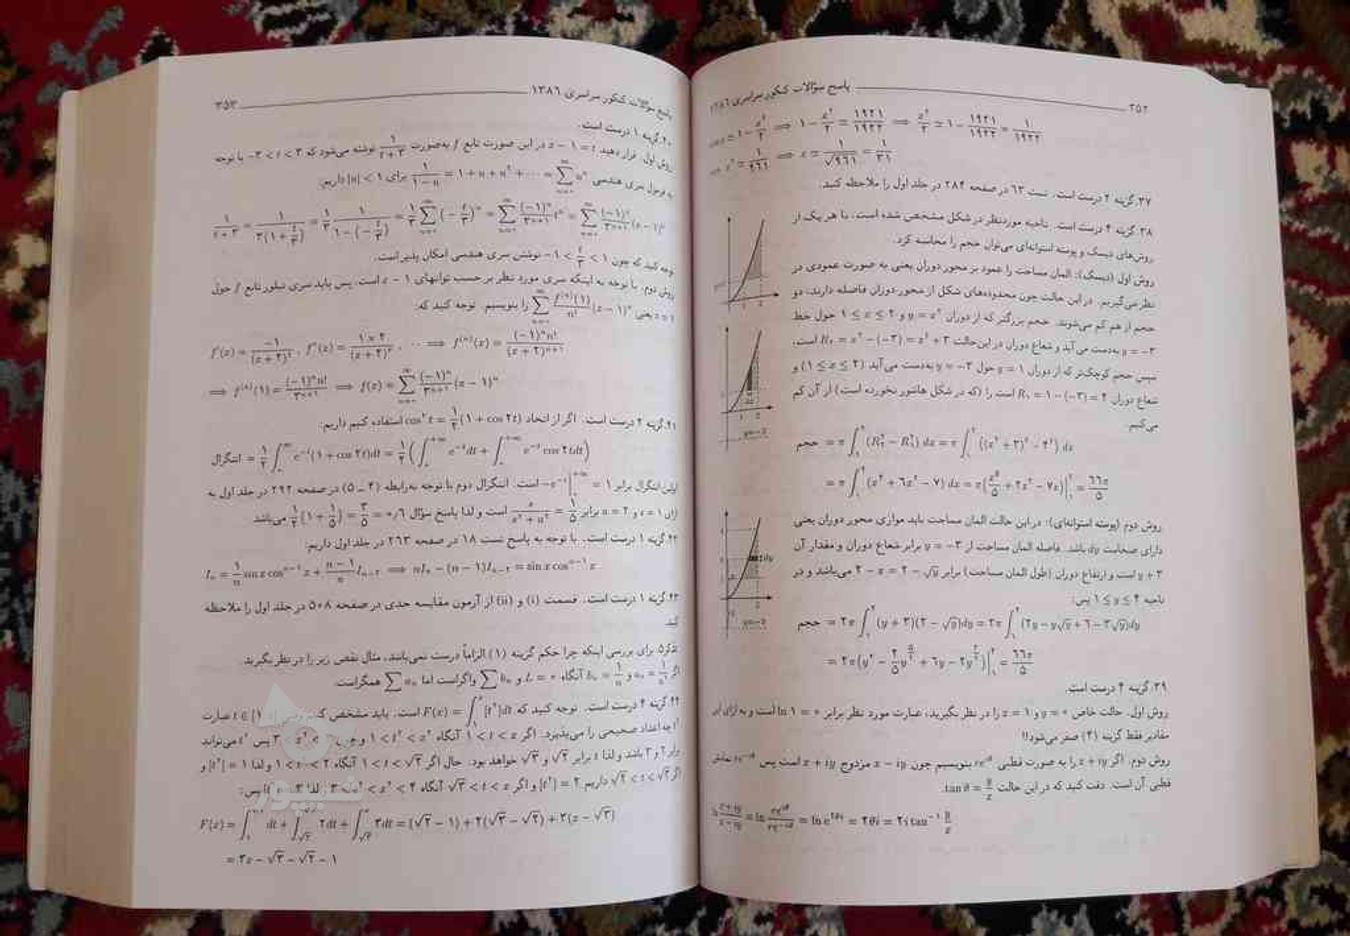 ۳۵۲ پاسخ سؤالات کنکور سراسری ۱۳۸۶
cos x = 1 - x²/۲ ⟹ ۱ - x²/۲ = ۱۹۲۱/۱۹۲۲ ⟹ x²/۲ = ۱ - ۱۹۲۱/۱۹۲۲ = ۱/۱۹۲۲
⟹ x² = ۱/۹۶۱ ⟹ x = ۱/√۹۶۱ = ۱/۳۱
۳۷. گزینه ۲ درست است. تست ۶۳ در صفحه ۲۸۴ در جلد اول را ملاحظه کنید.
۳۸. گزینه ۴ درست است. ناحیه موردنظر در شکل مشخص شده است، با هر یک از
روش‌های دیسک و پوسته استوانه‌ای می‌توان حجم را محاسبه کرد.
روش اول (دیسک): المان مساحت را عمود بر محور دوران یعنی به صورت عمودی در
نظر می‌گیریم. در این حالت چون محدوده‌های شکل از محور دوران فاصله دارند، دو
حجم از هم کم می‌شوند. حجم بزرگتر که از دوران y = x² و ۱ ≤ x ≤ ۲ حول خط
y = -۳ به‌دست می‌آید و شعاع دوران در این حالت R₂ = x² - (-۳) = x² + ۳ است،
سپس حجم کوچک‌تر که از دوران y = ۱ حول y = -۳ به‌دست می‌آید (۱ ≤ x ≤ ۲) و
شعاع دوران R₁ = ۱ - (-۳) = ۴ است را (که در شکل هاشور نخورده است) از آن کم
می‌کنیم.
حجم = π∫₁² (R₂² - R₁²) dx = π∫₁² ((x² + ۳)² - ۴²) dx
= π∫₁² (x⁴ + ۶x² - ۷) dx = π(x⁵/۵ + ۲x³ - ۷x)|₁² = ۶۶π/۵
روش دوم (پوسته استوانه‌ای): در این حالت المان مساحت باید موازی محور دوران یعنی
دارای ضخامت dy باشد. فاصله المان مساحت از y = -۳ برابر شعاع دوران و مقدار آن
y + ۳ است و ارتفاع دوران (طول المان مساحت) برابر ۲ - x = ۲ - √y می‌باشد و در
ناحیه ۱ ≤ y ≤ ۴ پس:
حجم = ۲π∫₁⁴ (y + ۳)(۲ - √y)dy = ۲π∫₁⁴ (۲y - y√y + ۶ - ۳√y)dy
= ۲π(y² - ۲/۵ y^(۵/۲) + ۶y - ۲y^(۳/۲))|₁⁴ = ۶۶π/۵
۳۹. گزینه ۴ درست است.
روش اول. حالت خاص y = ۰ و x = ۱ را در نظر بگیرید، عبارت مورد نظر برابر ln ۱ = ۰ است و به ازای این
مقادیر فقط گزینه (۴) صفر می‌شود!!
روش دوم. اگر x + iy را به صورت قطبی re^(iθ) بنویسیم چون x - iy مزدوج x + iy است پس re^(-iθ) نمایش
قطبی آن است. دقت کنید که در این حالت tan θ = y/x.
ln (x+iy)/(x-iy) = ln re^(iθ)/re^(-iθ) = ln e^(۲θi) = ۲θi = ۲i tan⁻¹ y/x
پاسخ سؤالات کنکور سراسری ۱۳۸۶ ۳۵۳
۴۰. گزینه ۱ درست است.
روش اول. قرار دهید x - ۱ = t در این صورت تابع f به‌صورت ۱/(t+۳) نوشته می‌شود که -۳ < t < ۳ با توجه
به فرمول سری هندسی ۱/(۱-u) = ۱ + u + u² + ⋯ = ∑ uⁿ برای |u| < ۱ داریم:
۱/(t+۳) = ۱/(۳(۱+t/۳)) = ۱/۳ ۱/(۱-(-t/۳)) = ۱/۳ ∑(-t/۳)ⁿ = ∑ (-۱)ⁿ/۳ⁿ⁺¹ tⁿ = ∑ (-۱)ⁿ/۳ⁿ⁺¹ (x-۱)ⁿ
توجه کنید که چون -۱ < t/۳ < ۱ نوشتن سری هندسی امکان پذیر است.
روش دوم. با توجه به اینکه سری مورد نظر بر حسب توانهای x - ۱ است، پس باید سری تیلور تابع f حول
x = ۱ یعنی ∑ f⁽ⁿ⁾(۱)/n! (x - ۱)ⁿ را بنویسیم. توجه کنید که:
f′(x) = -۱/(x+۲)², f″(x) = ۱×۲/(x+۲)³, ⋯ ⟹ f⁽ⁿ⁾(x) = (-۱)ⁿn!/(x+۲)ⁿ⁺¹
⟹ f⁽ⁿ⁾(۱) = (-۱)ⁿn!/۳ⁿ⁺¹ ⟹ f(x) = ∑ (-۱)ⁿ/۳ⁿ⁺¹ (x - ۱)ⁿ
۴۱. گزینه ۲ درست است. اگر از اتحاد cos² t = ۱/۲(۱ + cos ۲t) استفاده کنیم داریم:
انتگرال = ۱/۲ ∫₀^∞ e⁻ᵗ(۱ + cos ۲t)dt = ۱/۲ (∫₀^(+∞) e⁻ᵗdt + ∫₀^(+∞) e⁻ᵗ cos ۲tdt)
اولین انتگرال برابر -e⁻ᵗ|₀^(+∞) = ۱ است. انتگرال دوم با توجه به‌رابطه (۴ ـ ۵) در صفحه ۲۹۲ در جلد اول به
ازای s = ۱ و a = ۲ برابر s/(s²+a²) = ۱/۵ است و لذا پاسخ سؤال ۱/۲(۱ + ۱/۵) = ۳/۵ = ۰/۶ می‌باشد.
۴۲. گزینه ۱ درست است. با توجه به پاسخ تست ۱۸ در صفحه ۲۶۳ در جلد اول داریم:
Iₙ = ۱/n sin x cosⁿ⁻¹ x + (n-۱)/n Iₙ₋₂ ⟹ nIₙ - (n - ۱)Iₙ₋₂ = sin x cosⁿ⁻¹ x
۴۳. گزینه ۱ درست است. قسمت (i) و (ii) از آزمون مقایسه حدی در صفحه ۵۰۸ در جلد اول را ملاحظه
کنید.
تذکر۵. برای بررسی اینکه چرا حکم گزینه (۱) الزاماً درست نمی‌باشد، مثال نقض زیر را در نظر بگیرید.
اگر aₙ = ۱/n² و bₙ = ۱/n آنگاه L = ۰ و ∑ bₙ واگراست اما ∑ aₙ همگراست.
۴۴. گزینه ۴ درست است. توجه کنید که F(x) = ∫₁ˣ [t²]dt است. باید مشخص کنیم t ∈ [۱ عبارت
t² چه اعداد صحیحی را می‌پذیرد. اگر ۱ < t < x آنگاه ۱ < t² < x² و چون ۳ پس t² می‌تواند
برابر ۲ و ۳ باشد و لذا t برابر √۲ و √۳ خواهد بود. حال اگر ۱ < t < √۲ آنگاه ۱ < t² < ۲ و لذا [t²] = ۱ و
اگر √۲ < t < √۳ داریم [t²] = ۲ و اگر √۳ < t < x آنگاه ۳ < t² < x² < ۴ لذا [t²] = ۳ پس:
F(x) = ∫₁^√۲ dt + ∫_√۲^√۳ ۲dt + ∫_√۳ˣ ۳dt = (√۲ - ۱) + ۲(√۳ - √۲) + ۳(x - √۳)
= ۳x - √۳ - √۲ - ۱
شیپور